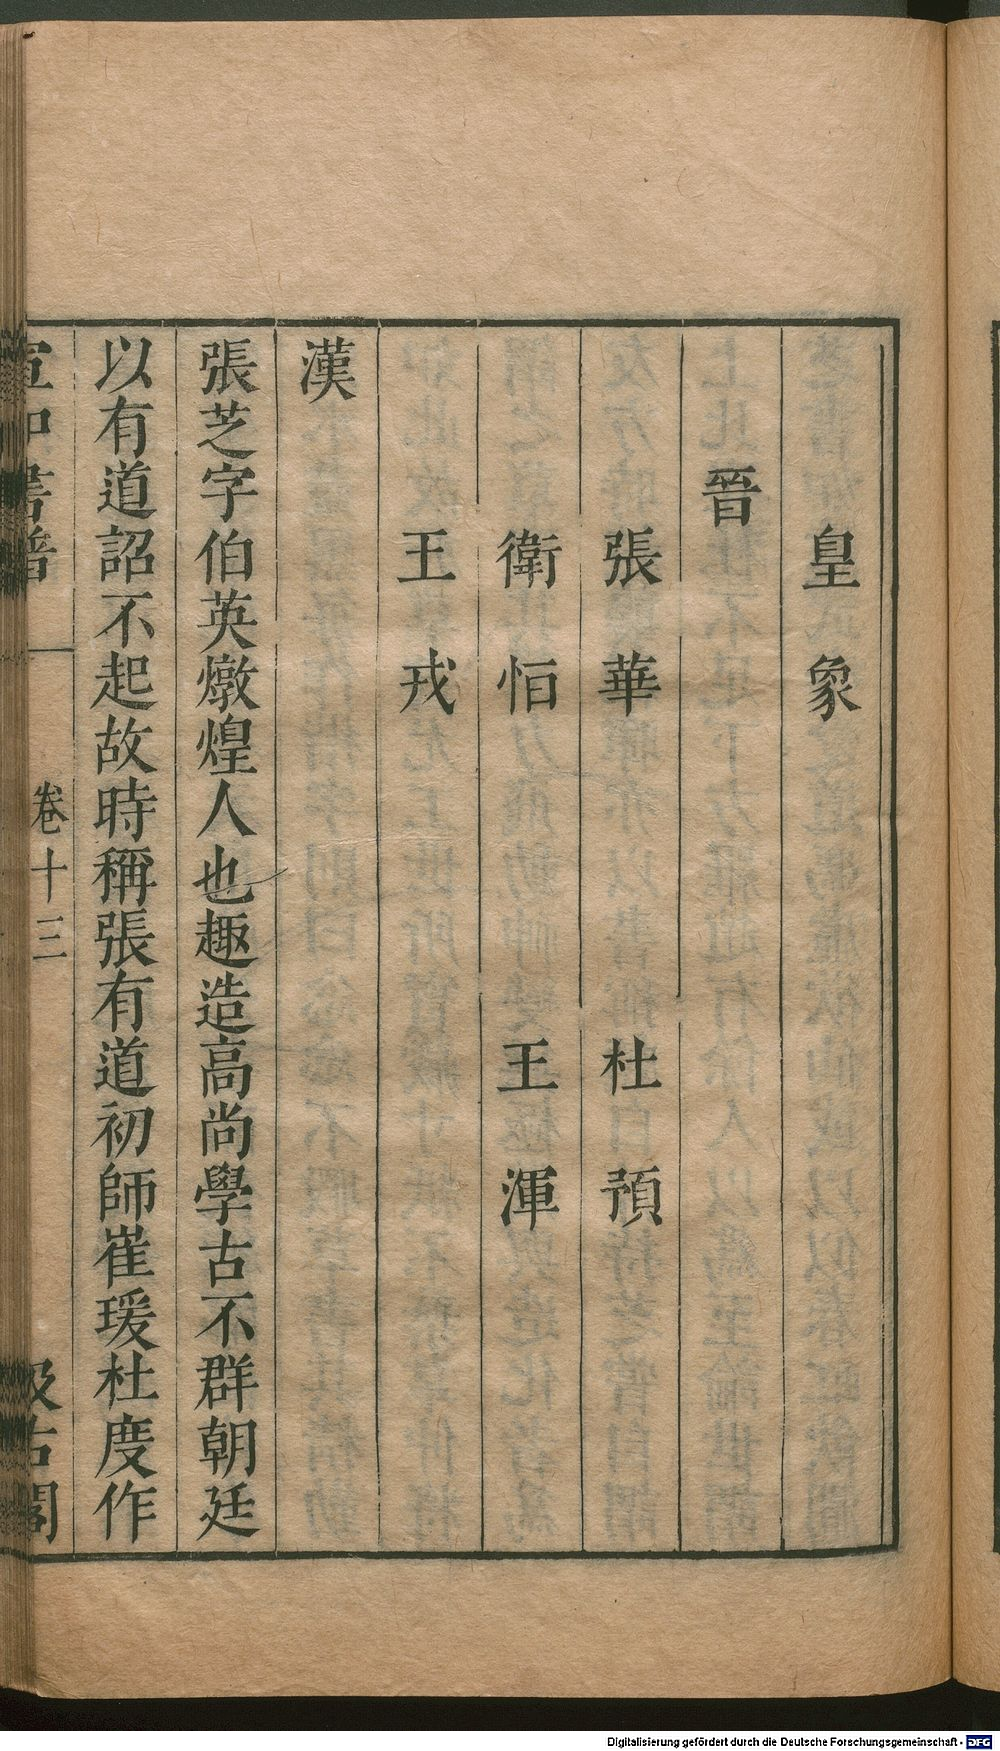 皇象
晉
張華 杜預
衛恒 王渾
王戎
漢
張芝字伯英燉煌人也趣造高尚學古不群朝廷
以有道詔不起故時稱張有道初師崔瑗杜度作
宣和書譜 卷十三 汲古閣
Digitalisierung gefördert durch die Deutsche Forschungsgemeinschaft - DFG